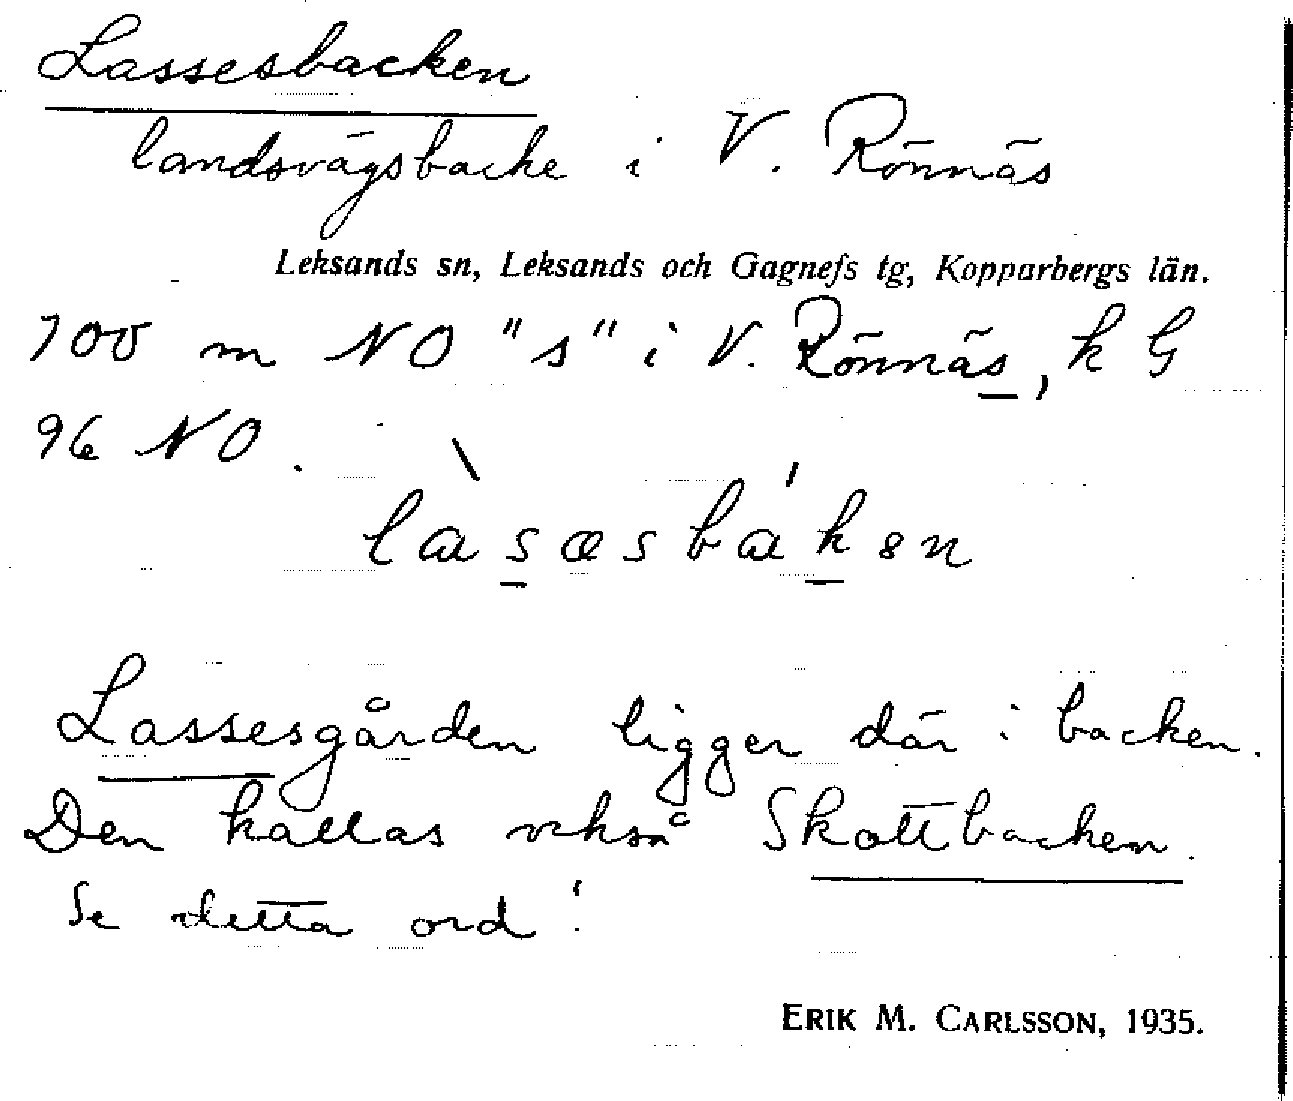 Lassesbacken
landsvägsbacke i V. Rönnäs
Leksands sn, Leksands och Gagnefs tg, Kopparbergs län.
700 m NO "s" i V. Rönnäs, k G
96 NO.
làsæsbákən
Lassesgården ligger där i backen.
Den kallas också Skottbacken.
Se detta ord!
ERIK M. CARLSSON, 1935.